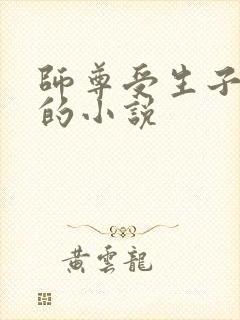 師尊受生子
的小說
黃雲龍